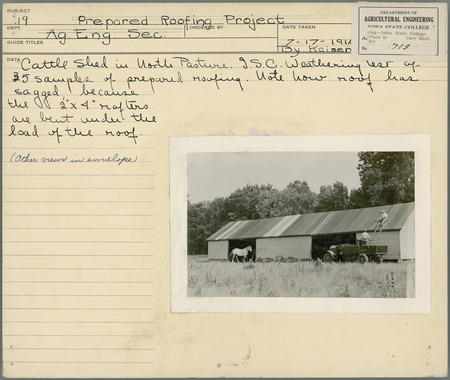 SUBJECT
#19 Prepared Roofing Project
DEPT. Ag Eng. Sec. ORDERED BY DATE TAKEN
GUIDE TITLES 7-17-191
By Kaiser
DEPARTMENT OF
AGRICULTURAL ENGINEERING
IOWA STATE COLLEGE
Iowa State College
Place in Date Made
Set
No. 703
DATA Cattle Shed in North Pasture. I.S.C. Weathering test of
35 samples of prepared roofing. Note how roof has
sagged because
the 2"x4" rafters
are bent under the
load of the roof.
(Other views in envelope)